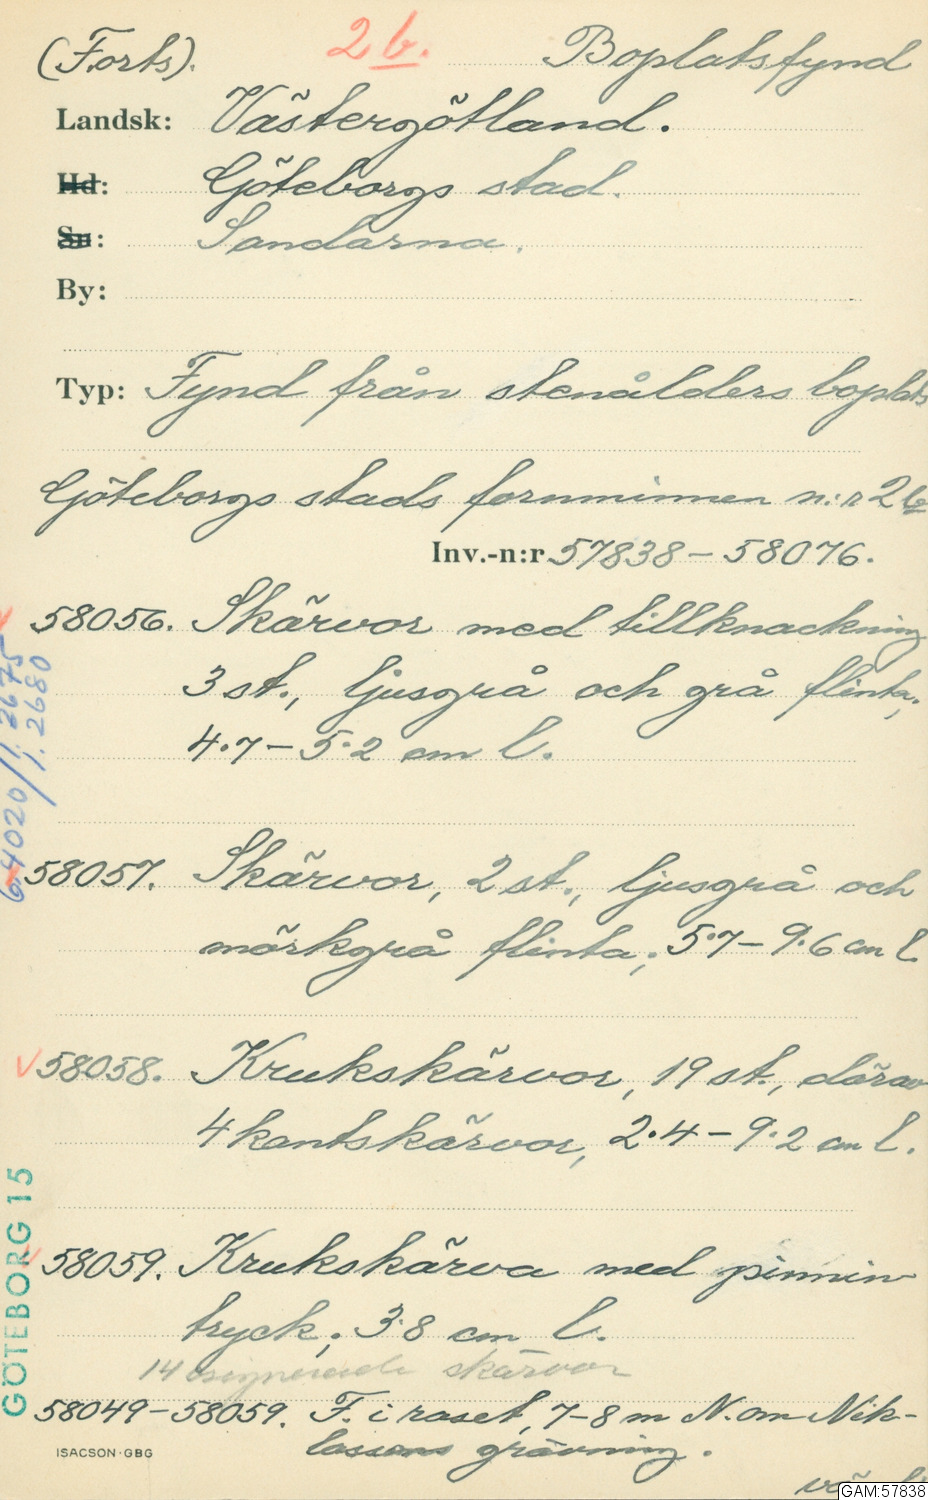 (Forts). 2 b. Boplatsfynd
Landsk: Västergötland.
Hd: Göteborgs stad.
Sn: Sandarna.
By:
Typ: Fynd från stenålders boplats
Göteborgs stads fornminnen n:r 2 b
Inv.-n:r 57838-58076.
58056. Skärvor med tillknackning
3 st., ljusgrå och grå flinta;
4.7-5.2 cm l.
58057. Skärvor, 2 st., ljusgrå och
mörkgrå flinta; 5.7-9.6 cm l.
58058. Krukskärvor, 19 st., därav
4 kantskärvor, 2.4-9.2 cm l.
58059. Krukskärva med pinnin-
tryck; 3.8 cm l.
14 osignerade skärvor
58049-58059. F. i raset, 7-8 m N. om Nik-
lassons grävning.
ISACSON·GBG
GÖTEBORG 15
6.4020/1.2675
/1.2680
GAM:57838